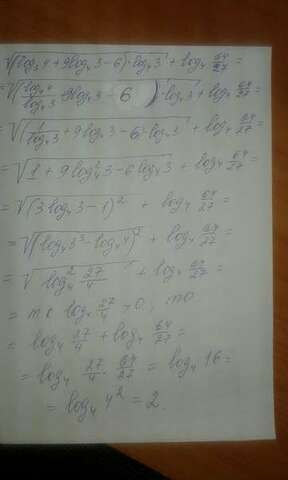 √((log₃4 + 9log₄3 − 6)·log₄3) + log₄ 64/27 =
= √((log₄4/log₄3 + 9log₄3 − 6)·log₄3) + log₄ 64/27 =
= √((1/log₄3 + 9log₄3 − 6)·log₄3) + log₄ 64/27 =
= √(1 + 9log₄²3 − 6log₄3) + log₄ 64/27 =
= √((3log₄3 − 1)²) + log₄ 64/27 =
= √((log₄3³ − log₄4)²) + log₄ 64/27 =
= √(log₄² 27/4) + log₄ 64/27 =
= т.к. log₄ 27/4 > 0, то
= log₄ 27/4 + log₄ 64/27 =
= log₄ 27/4 · 64/27 = log₄ 16 =
= log₄ 4² = 2.